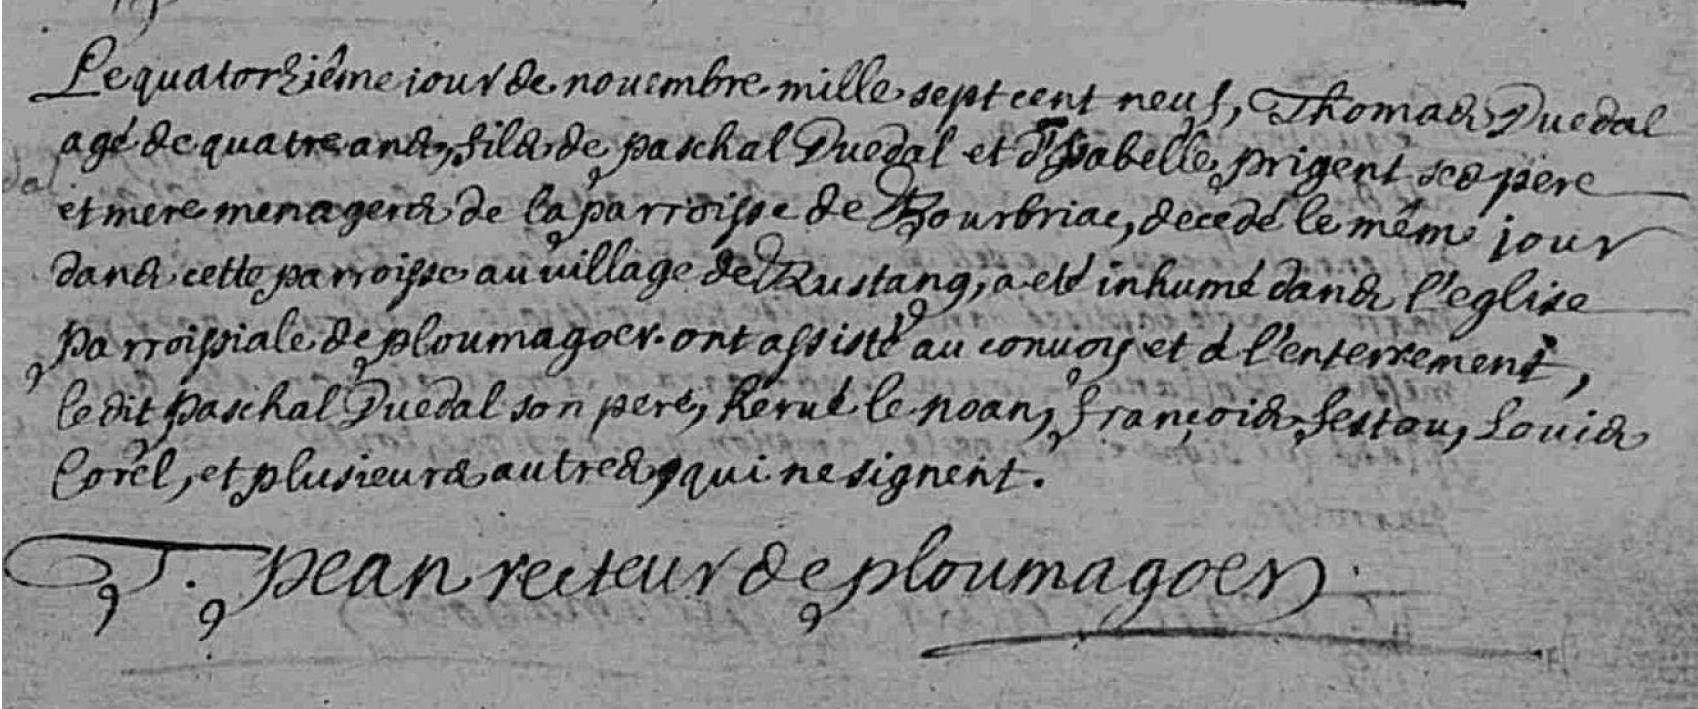 Le quatorziême iour de nouembre mille sept cent neuf, Thomas Duedal
agé de quatre ans, fils de paschal Duedal et d'Isabelle prigent ses père
et mere menagers de la parroisse de Bourbriac, decedé le même jour
dans cette parroisse au village de Rustang, a eté inhumé dans l'eglise
parroissiale de ploumagoer. ont assisté au conuoy et à l'enterrement,
le dit paschal Duedal son pere, herué le noan, françois festou, Louis
Corel, et plusieurs autres qui ne signent.
T. pean recteur de ploumagoer